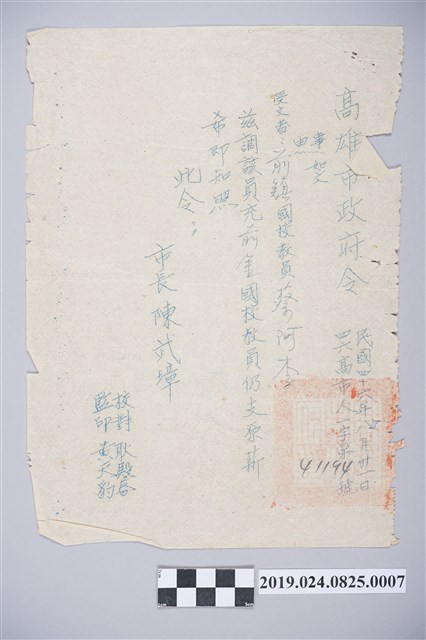 高雄市政府令
民國四十六年八月廿一日
四六高市人一字第41194號
事由 如文
受文者：前鎮國校教員蔡阿李
茲調該員充前金國校教員仍支原薪
希即知照
此令：
市長陳武璋
校對 耿殿
監印 黃天豹
2019.024.0825.0007